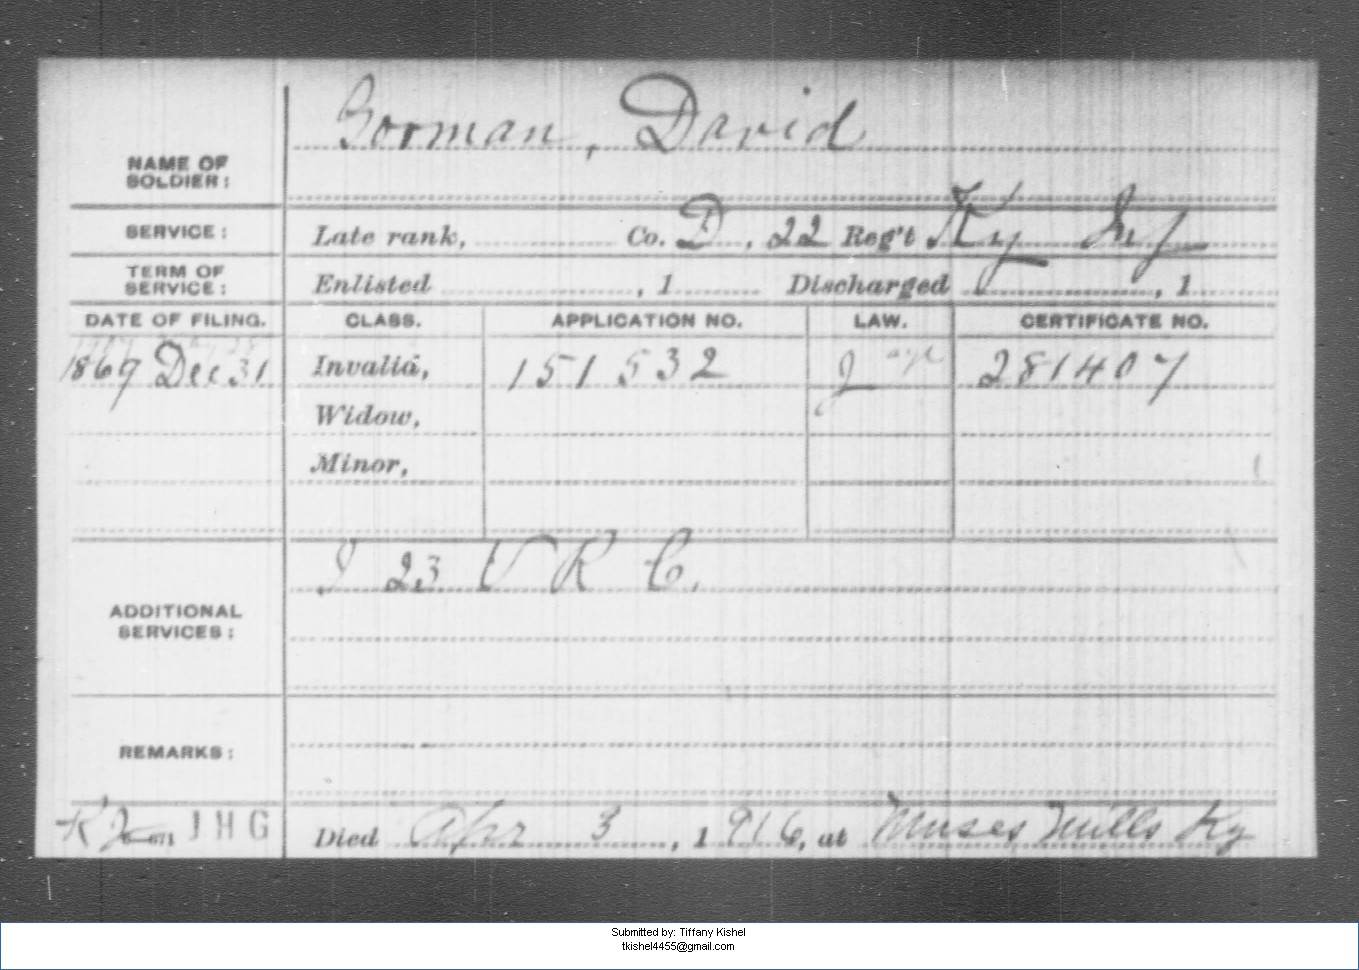 Gorman, David
NAME OF
SOLDIER:
SERVICE: Late rank, Co. D, 22 Reg't Ky Inf
TERM OF
SERVICE: Enlisted , 1 Discharged , 1
DATE OF FILING. CLASS. APPLICATION NO. LAW. CERTIFICATE NO.
1869 Dec 31 Invalid, 151532 281407
Widow,
Minor,
I 23 V R C.
ADDITIONAL
SERVICES:
REMARKS:
J H G Died Apr 3, 1916, at Muses Mills Ky
Submitted by: Tiffany Kishel
tkishel4455@gmail.com